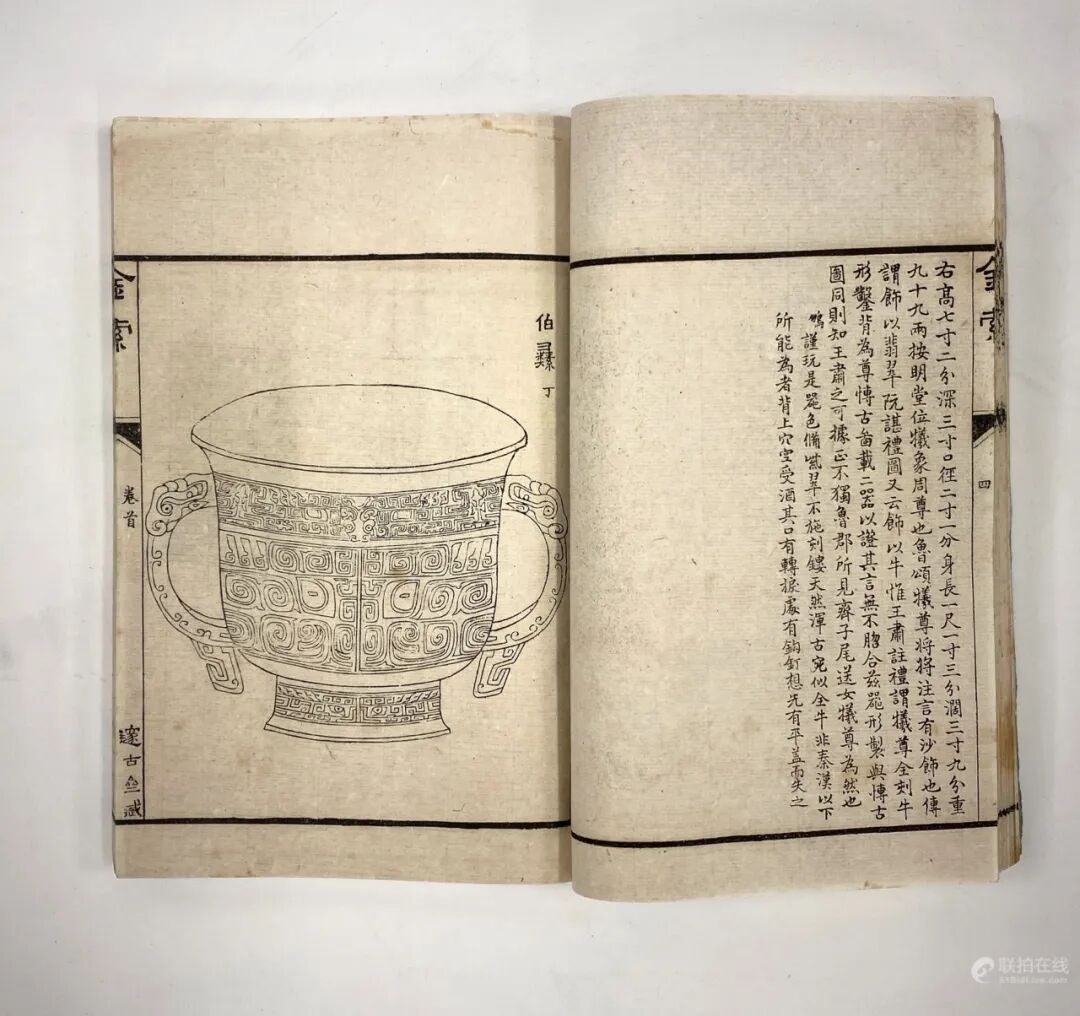 金索
四
右高七寸二分深三寸口徑二寸一分身長一尺一寸三分濶三寸九分重
九十九兩按明堂位犧象周尊也魯頌犧尊將將注言有沙飾也傳
謂飾以翡翠阮諶禮圖又云飾以牛惟王肅註禮謂犧尊全刻牛
形鑿背為尊博古啚載二器以證其言無不脗合茲器形製與博古
圖同則知王肅之可據正不獨魯郡所見齊子尾送女犧尊為然也
鵷謹玩是器色備紫翠不施刻鏤天然渾古宛似全牛非秦漢以下
所能為者背上穴空受酒其口有轉捩處有鉤釘想先有平盖而失之
伯彝 丁
金索
卷首
邃古齋藏
联拍在线